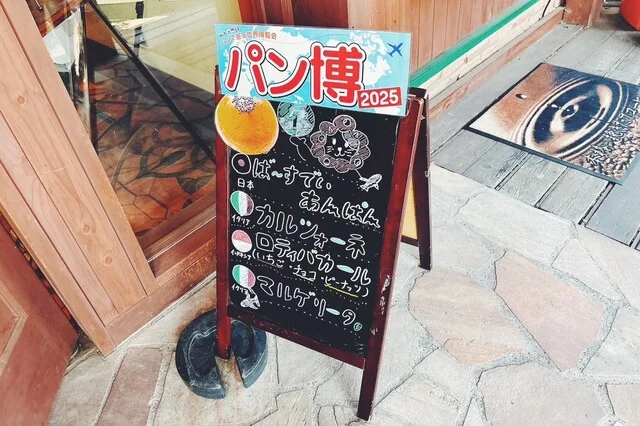 世界博覧会
パン博
2025
ばーすでい
あんぱん
日本
カルツォーネ
イタリア
ロティバカール
インドネシア
(いちご・チョコ・ピーナッツ)
マルゲリータ
イタリア